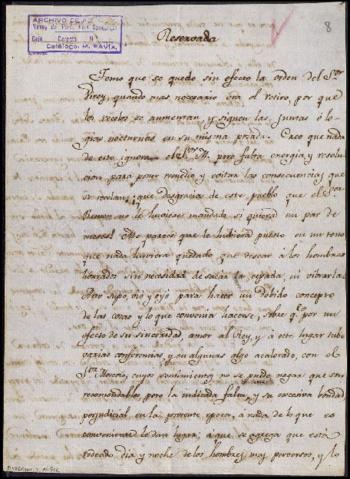 ARCHIVO
8
Reservada
Temo que se quede sin efecto la orden del Sor.
Virey, quando mas necesario era el retiro, por que
los recelos se aumentan, y siguen las Juntas ó lo-
gias nocturnas en su misma posada. Creo que nada
de esto ignora el Sor. M. pero falta energia y resolu-
cion para poner remedio, y evitar las consecuencias que
se recelan, que desgracia de este pueblo que el Sor.
no le hubiese mandado si quiera un par de
meses! Me parece que lo hubiera puesto en un tono
que nada hubiera quedado que desear á los hombres
honrados sin necesidad de sacar la espada, ni vibrarla.
Pero supo, vio y oyó para hacer un debido concepto
de las cosas y lo que convenia hacerse, sobre q.e por un
efecto de su sinceridad, amor al Rey, y á este lugar tubo
varias conferencias, y en algunas algo acalorado, con el
Sor. cuyos sentimientos no se puede negar que son
recomendables pero la indicada falta, y su excesiva bondad
perjudicial en la presente epoca, á nada de lo que es
conveniente le dan lugar, á que se agrega que está
rodeado dia y noche de los hombres mas perversos, y lo